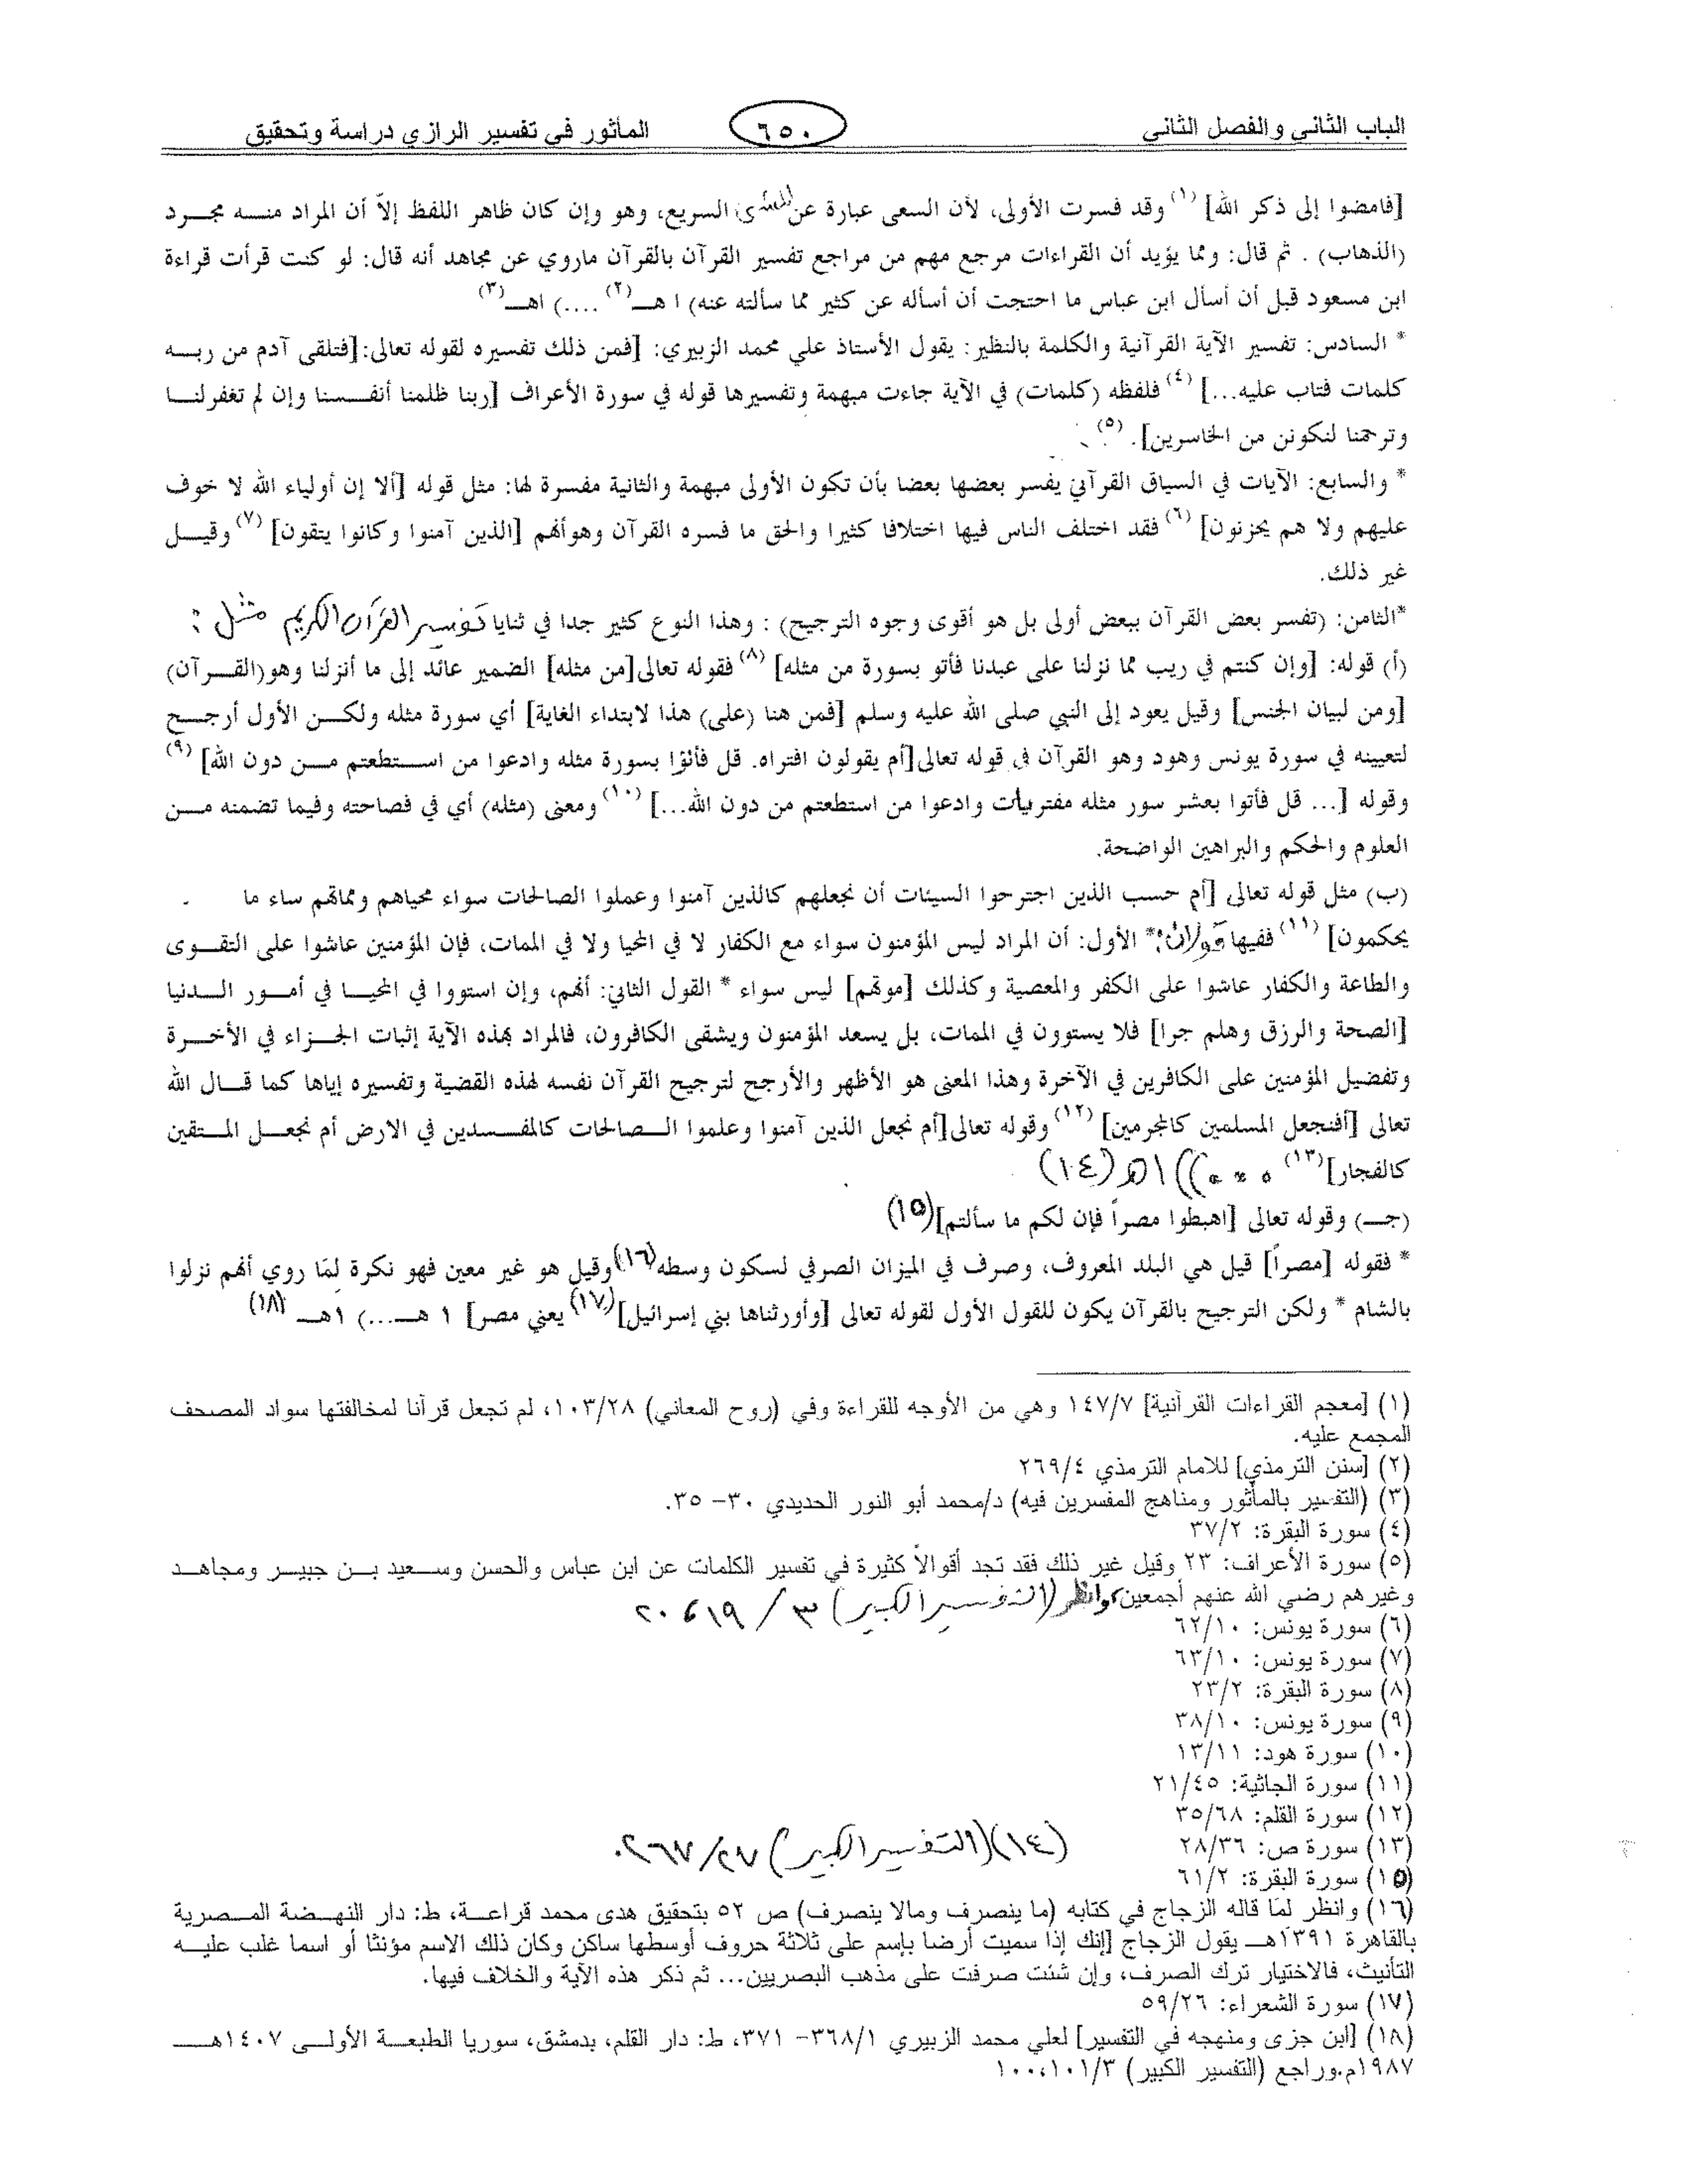 الباب الثاني والفصل الثاني
٦٥٠
المأثور في تفسير الرازي دراسة وتحقيق
[فامضوا إلى ذكر الله] (١) وقد فسرت الأولى، لأن السعى عبارة عن المشى السريع، وهو وإن كان ظاهر اللفظ إلاّ أن المراد منه مجرد
(الذهاب) . ثم قال: ومما يؤيد أن القراءات مرجع مهم من مراجع تفسير القرآن بالقرآن ماروي عن مجاهد أنه قال: لو كنت قرأت قراءة
ابن مسعود قبل أن أسأل ابن عباس ما احتجت أن أسأله عن كثير مما سألته عنه) ا هـ (٢) ....) اهـ (٣)
* السادس: تفسير الآية القرآنية والكلمة بالنظير: يقول الأستاذ علي محمد الزبيري: [فمن ذلك تفسيره لقوله تعالى:[فتلقى آدم من ربه
كلمات فتاب عليه...] (٤) فلفظه (كلمات) في الآية جاءت مبهمة وتفسيرها قوله في سورة الأعراف [ربنا ظلمنا أنفسنا وإن لم تغفرلنا
وترحمنا لنكونن من الخاسرين]. (٥)
* والسابع: الآيات في السياق القرآني يفسر بعضها بعضا بأن تكون الأولى مبهمة والثانية مفسرة لها: مثل قوله [ألا إن أولياء الله لا خوف
عليهم ولا هم يحزنون] (٦) فقد اختلف الناس فيها اختلافا كثيرا والحق ما فسره القرآن وهوأنهم [الذين آمنوا وكانوا يتقون] (٧) وقيل
غير ذلك.
*الثامن: (تفسر بعض القرآن ببعض أولى بل هو أقوى وجوه الترجيح) : وهذا النوع كثير جدا في ثنايا تفسير القرآن الكريم مثل :
(أ) قوله: [وإن كنتم في ريب مما نزلنا على عبدنا فأتو بسورة من مثله] (٨) فقوله تعالى[من مثله] الضمير عائد إلى ما أنزلنا وهو(القرآن)
[ومن لبيان الجنس] وقيل يعود إلى النبي صلى الله عليه وسلم [فمن هنا (على) هذا لابتداء الغاية] أي سورة مثله ولكن الأول أرجح
لتعيينه في سورة يونس وهود وهو القرآن في قوله تعالى[أم يقولون افتراه. قل فأتوا بسورة مثله وادعوا من استطعتم من دون الله] (٩)
وقوله [... قل فأتوا بعشر سور مثله مفتريات وادعوا من استطعتم من دون الله...] (١٠) ومعنى (مثله) أي في فصاحته وفيما تضمنه من
العلوم والحكم والبراهين الواضحة.
(ب) مثل قوله تعالى [أم حسب الذين اجترحوا السيئات أن نجعلهم كالذين آمنوا وعملوا الصالحات سواء محياهم ومماتهم ساء ما
يحكمون] (١١) ففيها قولان:* الأول: أن المراد ليس المؤمنون سواء مع الكفار لا في المحيا ولا في الممات، فإن المؤمنين عاشوا على التقوى
والطاعة والكفار عاشوا على الكفر والمعصية وكذلك [موتهم] ليس سواء * القول الثاني: أنهم، وإن استووا في المحيا في أمور الدنيا
[الصحة والرزق وهلم جرا] فلا يستوون في الممات، بل يسعد المؤمنون ويشقى الكافرون، فالمراد بهذه الآية إثبات الجزاء في الأخرة
وتفضيل المؤمنين على الكافرين في الآخرة وهذا المعنى هو الأظهر والأرجح لترجيح القرآن نفسه لهذه القضية وتفسيره إياها كما قال الله
تعالى [أفنجعل المسلمين كالمجرمين] (١٢) وقوله تعالى[أم نجعل الذين آمنوا وعلموا الصالحات كالمفسدين في الارض أم نجعل المتقين
كالفجار] (١٣) ...)) اهـ (١٤)
(جـ) وقوله تعالى [اهبطوا مصراً فإن لكم ما سألتم] (١٥)
* فقوله [مصراً] قيل هي البلد المعروف، وصرف في الميزان الصرفي لسكون وسطه (١٦) وقيل هو غير معين فهو نكرة لِمَا روي أنهم نزلوا
بالشام * ولكن الترجيح بالقرآن يكون للقول الأول لقوله تعالى [وأورثناها بني إسرائيل] (١٧) يعني مصر] ١ هـ...) ١هـ (١٨)
(١) [معجم القراءات القرآنية] ١٤٧/٧ وهي من الأوجه للقراءة وفي (روح المعاني) ١٠٣/٢٨، لم تجعل قرآنا لمخالفتها سواد المصحف
المجمع عليه.
(٢) [سنن الترمذي] للامام الترمذي ٢٦٩/٤
(٣) (التفسير بالمأثور ومناهج المفسرين فيه) د/محمد أبو النور الحديدي ٣٠– ٣٥.
(٤) سورة البقرة: ٣٧/٢
(٥) سورة الأعراف: ٢٣ وقيل غير ذلك فقد تجد أقوالاً كثيرة في تفسير الكلمات عن ابن عباس والحسن وسعيد بن جبير ومجاهد
وغيرهم رضي الله عنهم أجمعين، وانظر (التفسير الكبير) ٣/ ١٩، ٢٠
(٦) سورة يونس: ٦٢/١٠
(٧) سورة يونس: ٦٣/١٠
(٨) سورة البقرة: ٢٣/٢
(٩) سورة يونس: ٣٨/١٠
(١٠) سورة هود: ١٣/١١
(١١) سورة الجاثية: ٢١/٤٥
(١٢) سورة القلم: ٣٥/٦٨
(١٣) سورة ص: ٢٨/٣٦
(١٤) (التفسير الكبير) ٢٧/ ٢٦٧.
(١٥) سورة البقرة: ٦١/٢
(١٦) وانظر لِمَا قاله الزجاج في كتابه (ما ينصرف ومالا ينصرف) ص ٥٢ بتحقيق هدى محمد قراعة، ط: دار النهضة المصرية
بالقاهرة ١٣٩١هـ يقول الزجاج [إنك إذا سميت أرضا بإسم على ثلاثة حروف أوسطها ساكن وكان ذلك الاسم مؤنثا أو اسما غلب عليه
التأنيث، فالاختيار ترك الصرف، وإن شئت صرفت على مذهب البصريين... ثم ذكر هذه الآية والخلاف فيها.
(١٧) سورة الشعراء: ٥٩/٢٦
(١٨) [ابن جزى ومنهجه في التفسير] لعلي محمد الزبيري ٣٦٨/١– ٣٧١، ط: دار القلم، بدمشق، سوريا الطبعة الأولى ١٤٠٧هـ
١٩٨٧م.وراجع (التفسير الكبير) ١٠٠،١٠١/٣